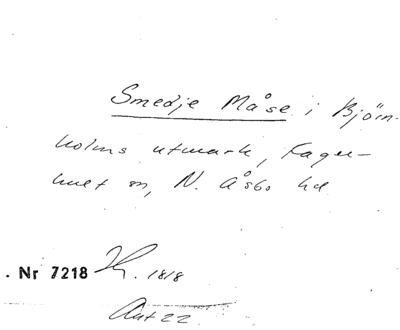 Smedje Måse i Björn-
holms utmark, Fager-
hult sn, N. Åsbo hd
. Nr 7218 1818
Ant 22